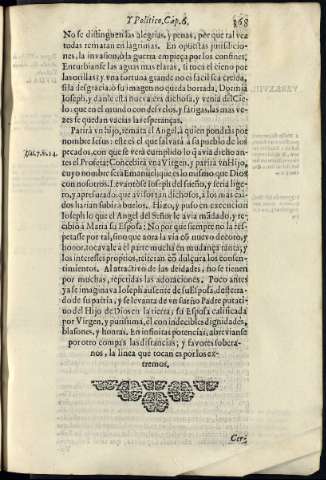 Y Politico, Cap. 6. 368
No se distinguen las alegrias, y penas, porque tal vez
todas rematan en lagrimas. En opuestas jurisdicio-
nes, la invasion, ò la guerra empieça por los confines;
Enturbianse las aguas mas claras, si toca el cieno por
las orillas; y vna fortuna grande no es facil sea creida,
si la desgracia, ò su imagen no queda borrada. Dormia
Ioseph, y dante esta nueva tan dichosa, y venia del Cie-
lo: que en el mundo con desvelos, y fatigas, las mas ve-
zes se quedan vacias las esperanças.
Parirà vn hijo, remata el Angel, à quien pondràs por
nombre Iesus: este es el que salvarà à su pueblo de los
pecados, con que se verà cumplido lo q̃ avia dicho an-
Isai. 7. n. 14. tes el Profeta: Concebirà vna Virgen, y parirà vn Hijo,
cuyo nombre serà Emanuel, que es lo mismo que Dios
con nosotros. Levantòse Ioseph del sueño, y seria lige-
ro, y apresurado, que avisos tan dichosos, à los mas tor-
dos harian subir à buelos. Hizo, y puso en execucion
Ioseph lo que el Angel del Señor le avia mãdado, y re-
cibiò a Maria su Esposa: No por que siempre no la res-
petasse por tal, sino que aora la via cõ nuevo decoro, y
honor, tocavale à èl parte mucha en mudança tanta; y
los interesses propios, reiteran cõ dulçura los consen-
timientos. Al atractivo de las deidades, no se tienen
por muchas, repetidas las adoraciones. Poco antes
ya se imaginava Ioseph ausente de su Esposa, desterra-
do de su patria, y se levanta de vn sueño Padre putati-
vo del Hijo de Dios en la tierra; su Esposa calificada
por Virgen, y purissima, èl con indecibles dignidades,
blasones, y honras. En infinitas potencias, abrevianse
por otro compàs las distancias; y favores sobera-
nos, la linea que tocan es por los ex-
tremos.
Cer-